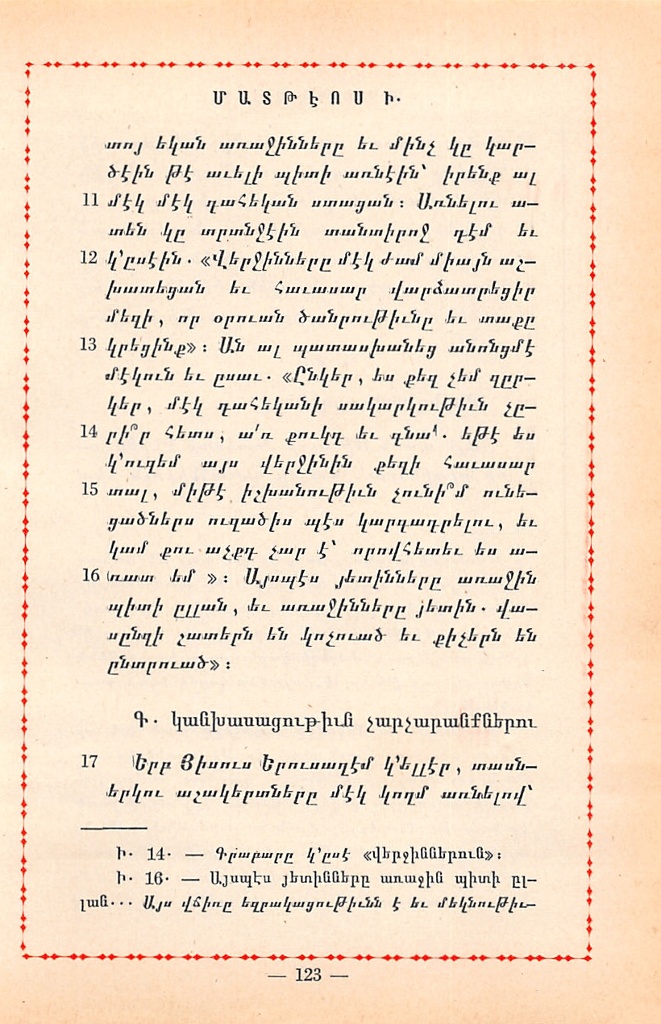 ՄԱՏԹԷՈՍ Ի.
տոյ եկան առաջինները եւ մինչ կը կար–
ծէին թէ աւելի պիտի առնէին՝ իրենք ալ
11 մէկ մէկ դահեկան ստացան։ Առնելու ա–
տեն կը տրտնջէին տանտիրոջ դէմ եւ
12 կ՚ըսէին. «Վերջինները մէկ ժամ միայն աշ–
խատեցան եւ հաւասար վարձատրեցիր
մեզի, որ օրուան ծանրութիւնը եւ տաքը
13 կրեցինք»։ Ան ալ պատասխանեց անոնցմէ
մէկուն եւ ըսաւ. «Ընկեր, ես քեզ չեմ զըր–
կեր, մէկ դահեկանի սակարկութիւն չը–
14 րի՞ր հետս, ա՛ռ քուկդ եւ գնա՛. եթէ ես
կ՚ուզեմ այս վերջինին քեզի հաւասար
15 տալ, միթէ իշխանութիւն չունի՞մ ունե–
ցածներս ուզածիս պէս կարգադրելու, եւ
կամ քու աչքդ չար է՝ որովհետեւ ես ա–
16 ռատ եմ »։ Այսպէս յետինները առաջին
պիտի ըլլան, եւ առաջինները յետին. վա–
սընզի շատերն են կոչուած եւ քիչերն են
ընտրուած»։
Գ. կանխասացութիւն չարչարանքներու
17 Երբ Յիսուս Երուսաղէմ կ՚ելլէր, տասն–
երկու աշակերտները մէկ կողմ առնելով՝
Ի. 14. — Գրաբարը կ՚ըսէ «վերջիններուն»։
Ի. 16. — Այսպէս յետինները առաջին պիտի ըլ–
լան... Այս վճիռը եզրակացութիւնն է եւ մեկնութիւ–
— 123 —